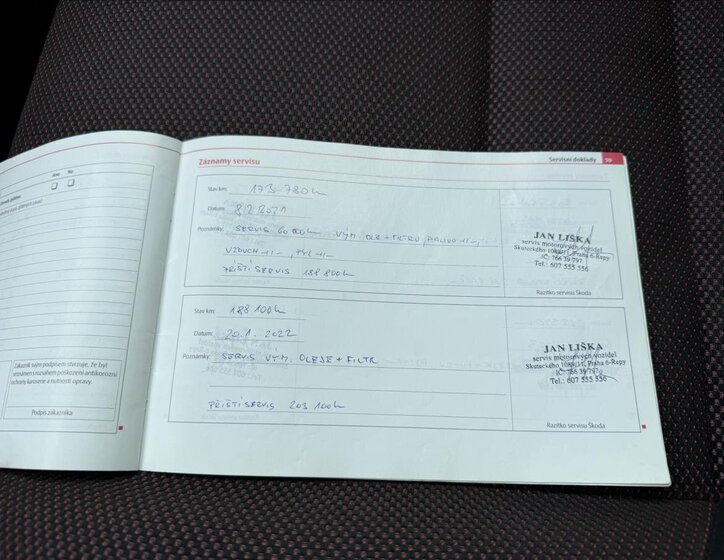 Ano Ne
Zákazník svým podpisem stvrzuje, že byl
seznámen s rozsahem poškození antikorozní
ochrany karoserie a nutností opravy.
Podpis zákazníka
Záznamy servisu
Servisní doklady
Stav km: 173 780 km
Datum: 8.2.2021
Poznámky: SERVIS 60 000 km VÝM. OLEJ + FILTRŮ, PALIVO -II-,
VZDUCH -II-, PYL -II-
PŘÍŠTÍ SERVIS 188 800 km
JAN LIŠKA
servis motorových vozidel
Skuteckého Praha 6-Řepy
IČ: 766 39 797
Tel.: 607 555 556
Razítko servisu Škoda
Stav km: 188 100 km
Datum: 20.1.2022
Poznámky: SERVIS VÝM. OLEJE + FILTR
PŘÍŠTÍ SERVIS 203 100 km
JAN LIŠKA
servis motorových vozidel
Skuteckého Praha 6-Řepy
IČ: 766 39 797
Tel.: 607 555 556
Razítko servisu Škoda